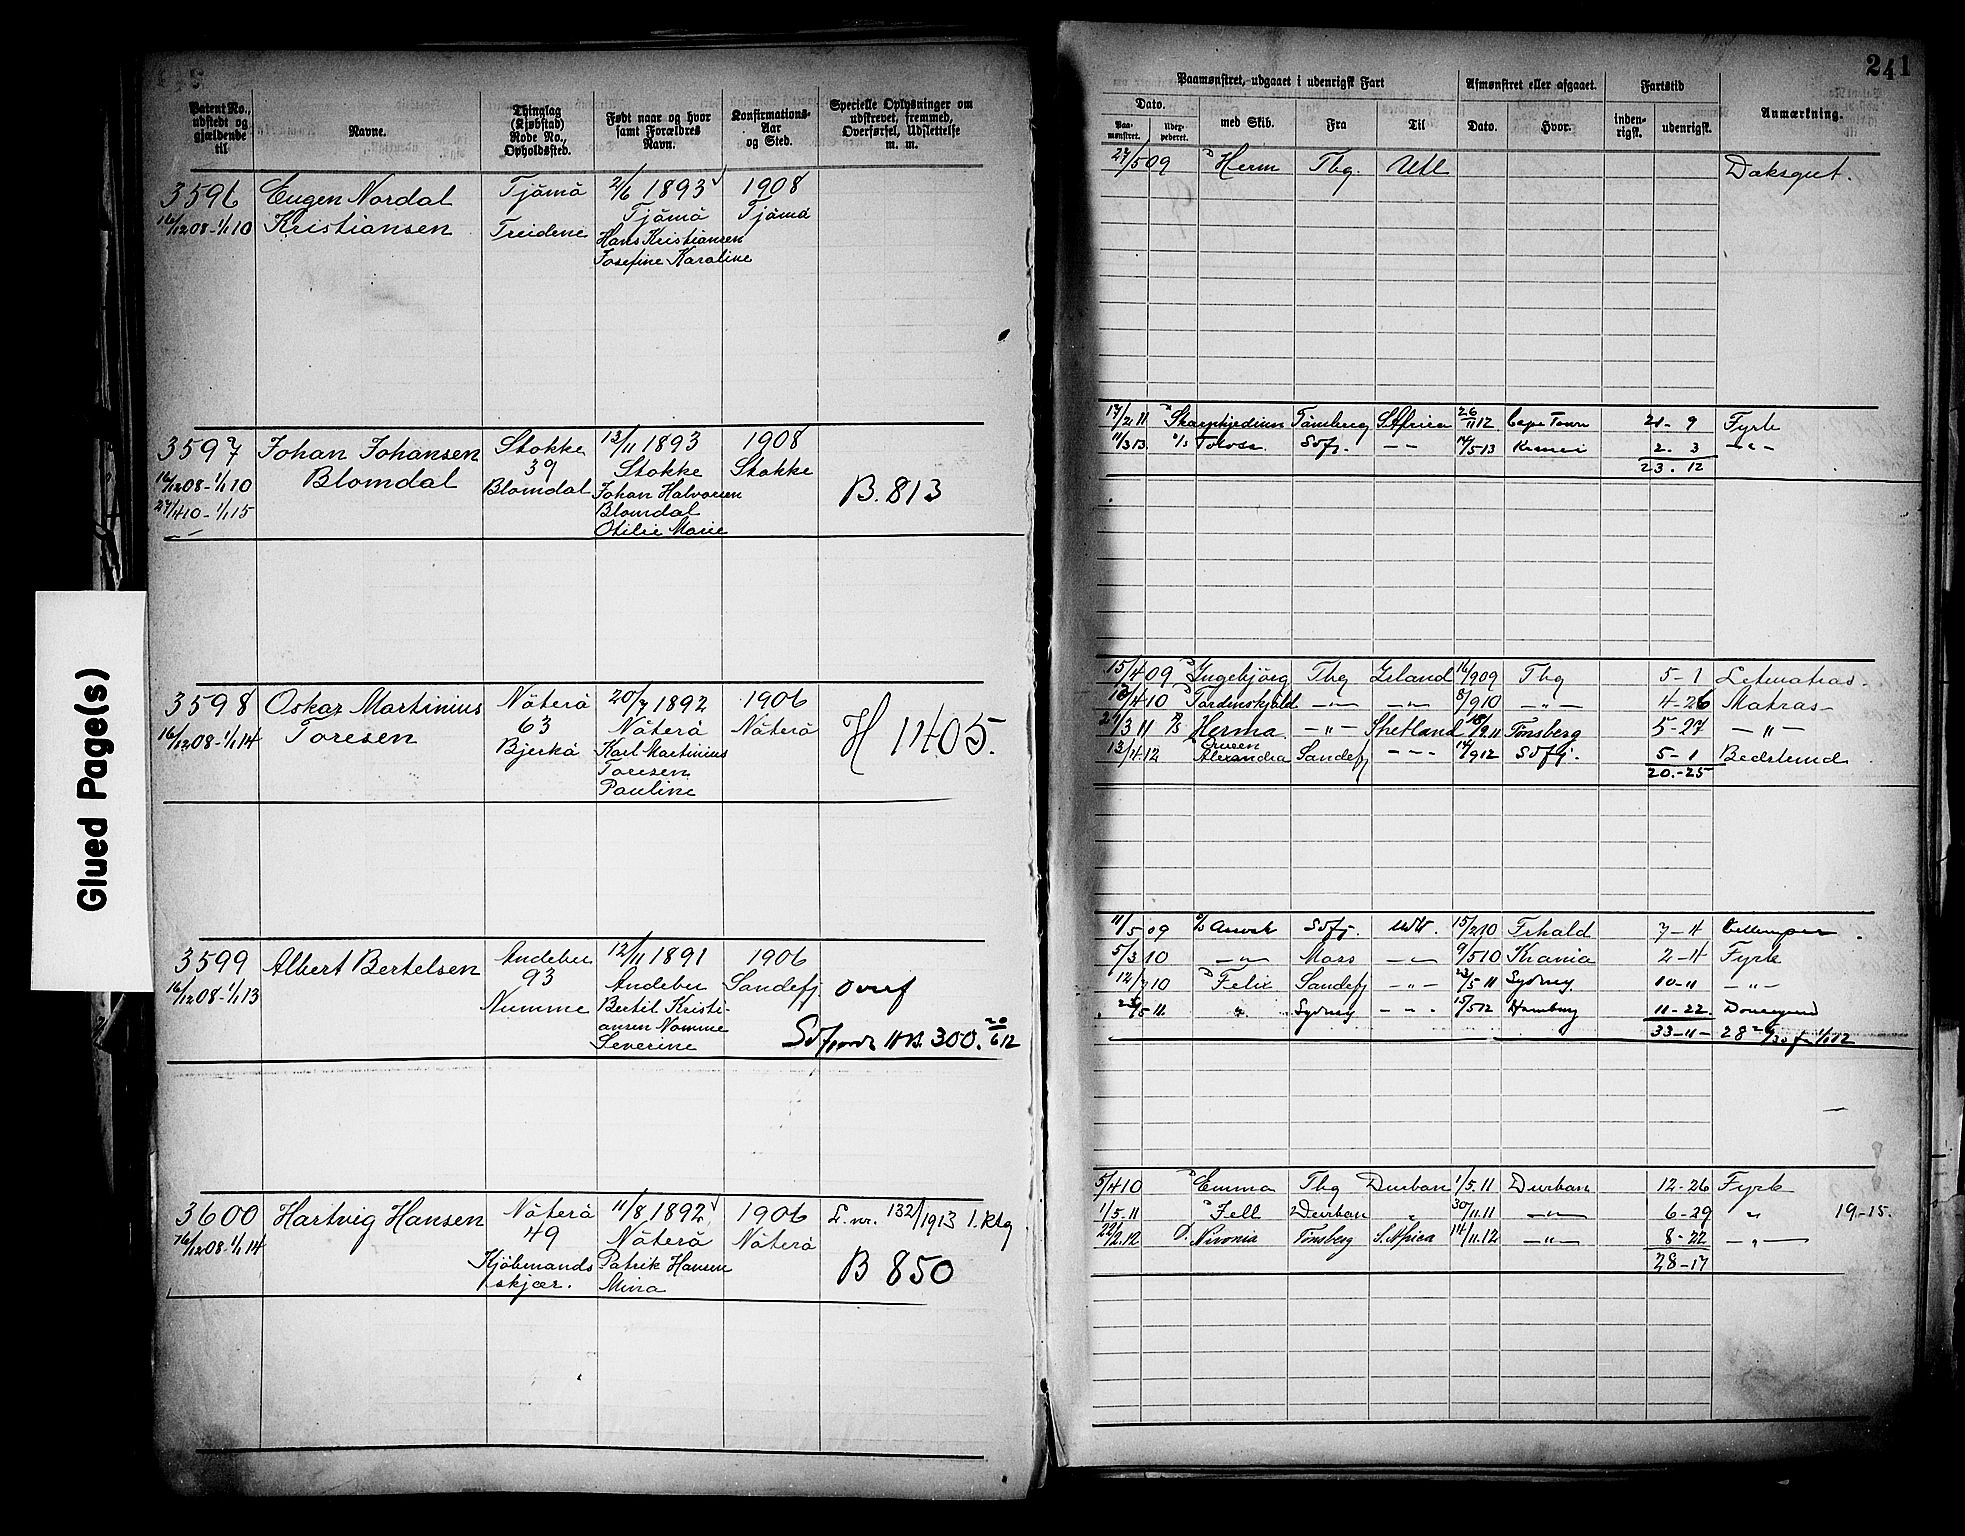 241
Patent No., udstedt og gjældende til
Navne.
Thinglag (Kjøbstad) Rode No., Opholdssted.
Født naar og hvor samt Forældres Navn.
Konfirmations-Aar og Sted.
Specielle Oplysninger om udskrevet, fremmed, Overførsel, Udslettelse m. m.
Paamønstret, udgaaet i udenrigsk Fart
Afmønstret eller afgaaet.
Fartstid
Anmærkning.
Dato.
med Skib.
Fra
Til
Dato.
Hvor.
inden-rigsk.
udenrigsk.
Paa-mønstret.
3596 Eugen Nordal Tjømø 2/6 1893 1908
16/12 08-1/1 10 Kristiansen Treidene Tjømø Tjømø
Hans Kristiansen
Josefine Karoline
27/5 09 Herm Tbg. Utl Daksgut.
3597 Johan Johansen Stokke 12/11 1893 1908
Blomdal 39 Stokke Stokke
16/12 08-1/1 10 Blomdal Johan Halvorsen B. 813
27/4 10-1/1 15 Blomdal
Otilie Marie
17/2 11 Skarphjedinn Tønsberg S. Africa 26/11 12 Cape Town 21- 9 Fyrb
11/3 13 Sdfj. -"- 14/5 13 2. 3 -"-
23. 12
3598 Oskar Martinius Nøterø 20/7 1892 1906
16/12 08-1/1 14 Toresen 63 Nøterø Nøterø H 1405.
Bjerkø Karl Martinius
Toresen
Pauline
15/4 09 Ingebjørg Tbg Island 16/9 09 Tbg 5-1 Letmatros
13/4 10 Tordenskjold -"- -"- 8/9 10 -"- 4-26 Matros
21/3 11 Herma -"- Shetland 18/9 11 Tønsberg 5-27 -"-
13/4 12 Queen Alexandra Sandefj -"- 14/9 12 Sdfj. 5-1 Bedstemd
20.-25
3599 Albert Bertelsen Andebu 12/11 1891 1906
16/12 08-1/1 13 93 Andebu Sandefj. overf
Numme Bertil Kristi-
ansen Nomme
Severine Sdfjords 300. 20/6 12
11/5 09 Sdfj. Utl. 15/2 10 Frhald 7-4
5/3 10 -"- Moss -"- 9/5 10 Krania 2-4 Fyrb
12/7 10 Felix Sandefj -"- 23/5 11 Sydney 10-11 -"-
23/5 11 " Sydney -"- 15/5 12 Hamburg 11-22
33-11-
3600 Hartvig Hansen Nøterø 11/8 1892 1906 L. nr. 132/1913 1. ktg
16/12 08-1/1 14 49 Nøterø Nøterø
Kjøbmands Patrik Hansen B 850
skjær. Mina
5/4 10 Emma Tbg Durban 1/5 11 Durban 12-26 Fyrb
1/5 11 Fell Durban " 30/11 11 -"- 6-29 " 19.-15.
22/2 12 D. Nivonia Tønsberg S. Africa 14/11 12 -"- 8-22 -"-
28-17
Glued Page(s)